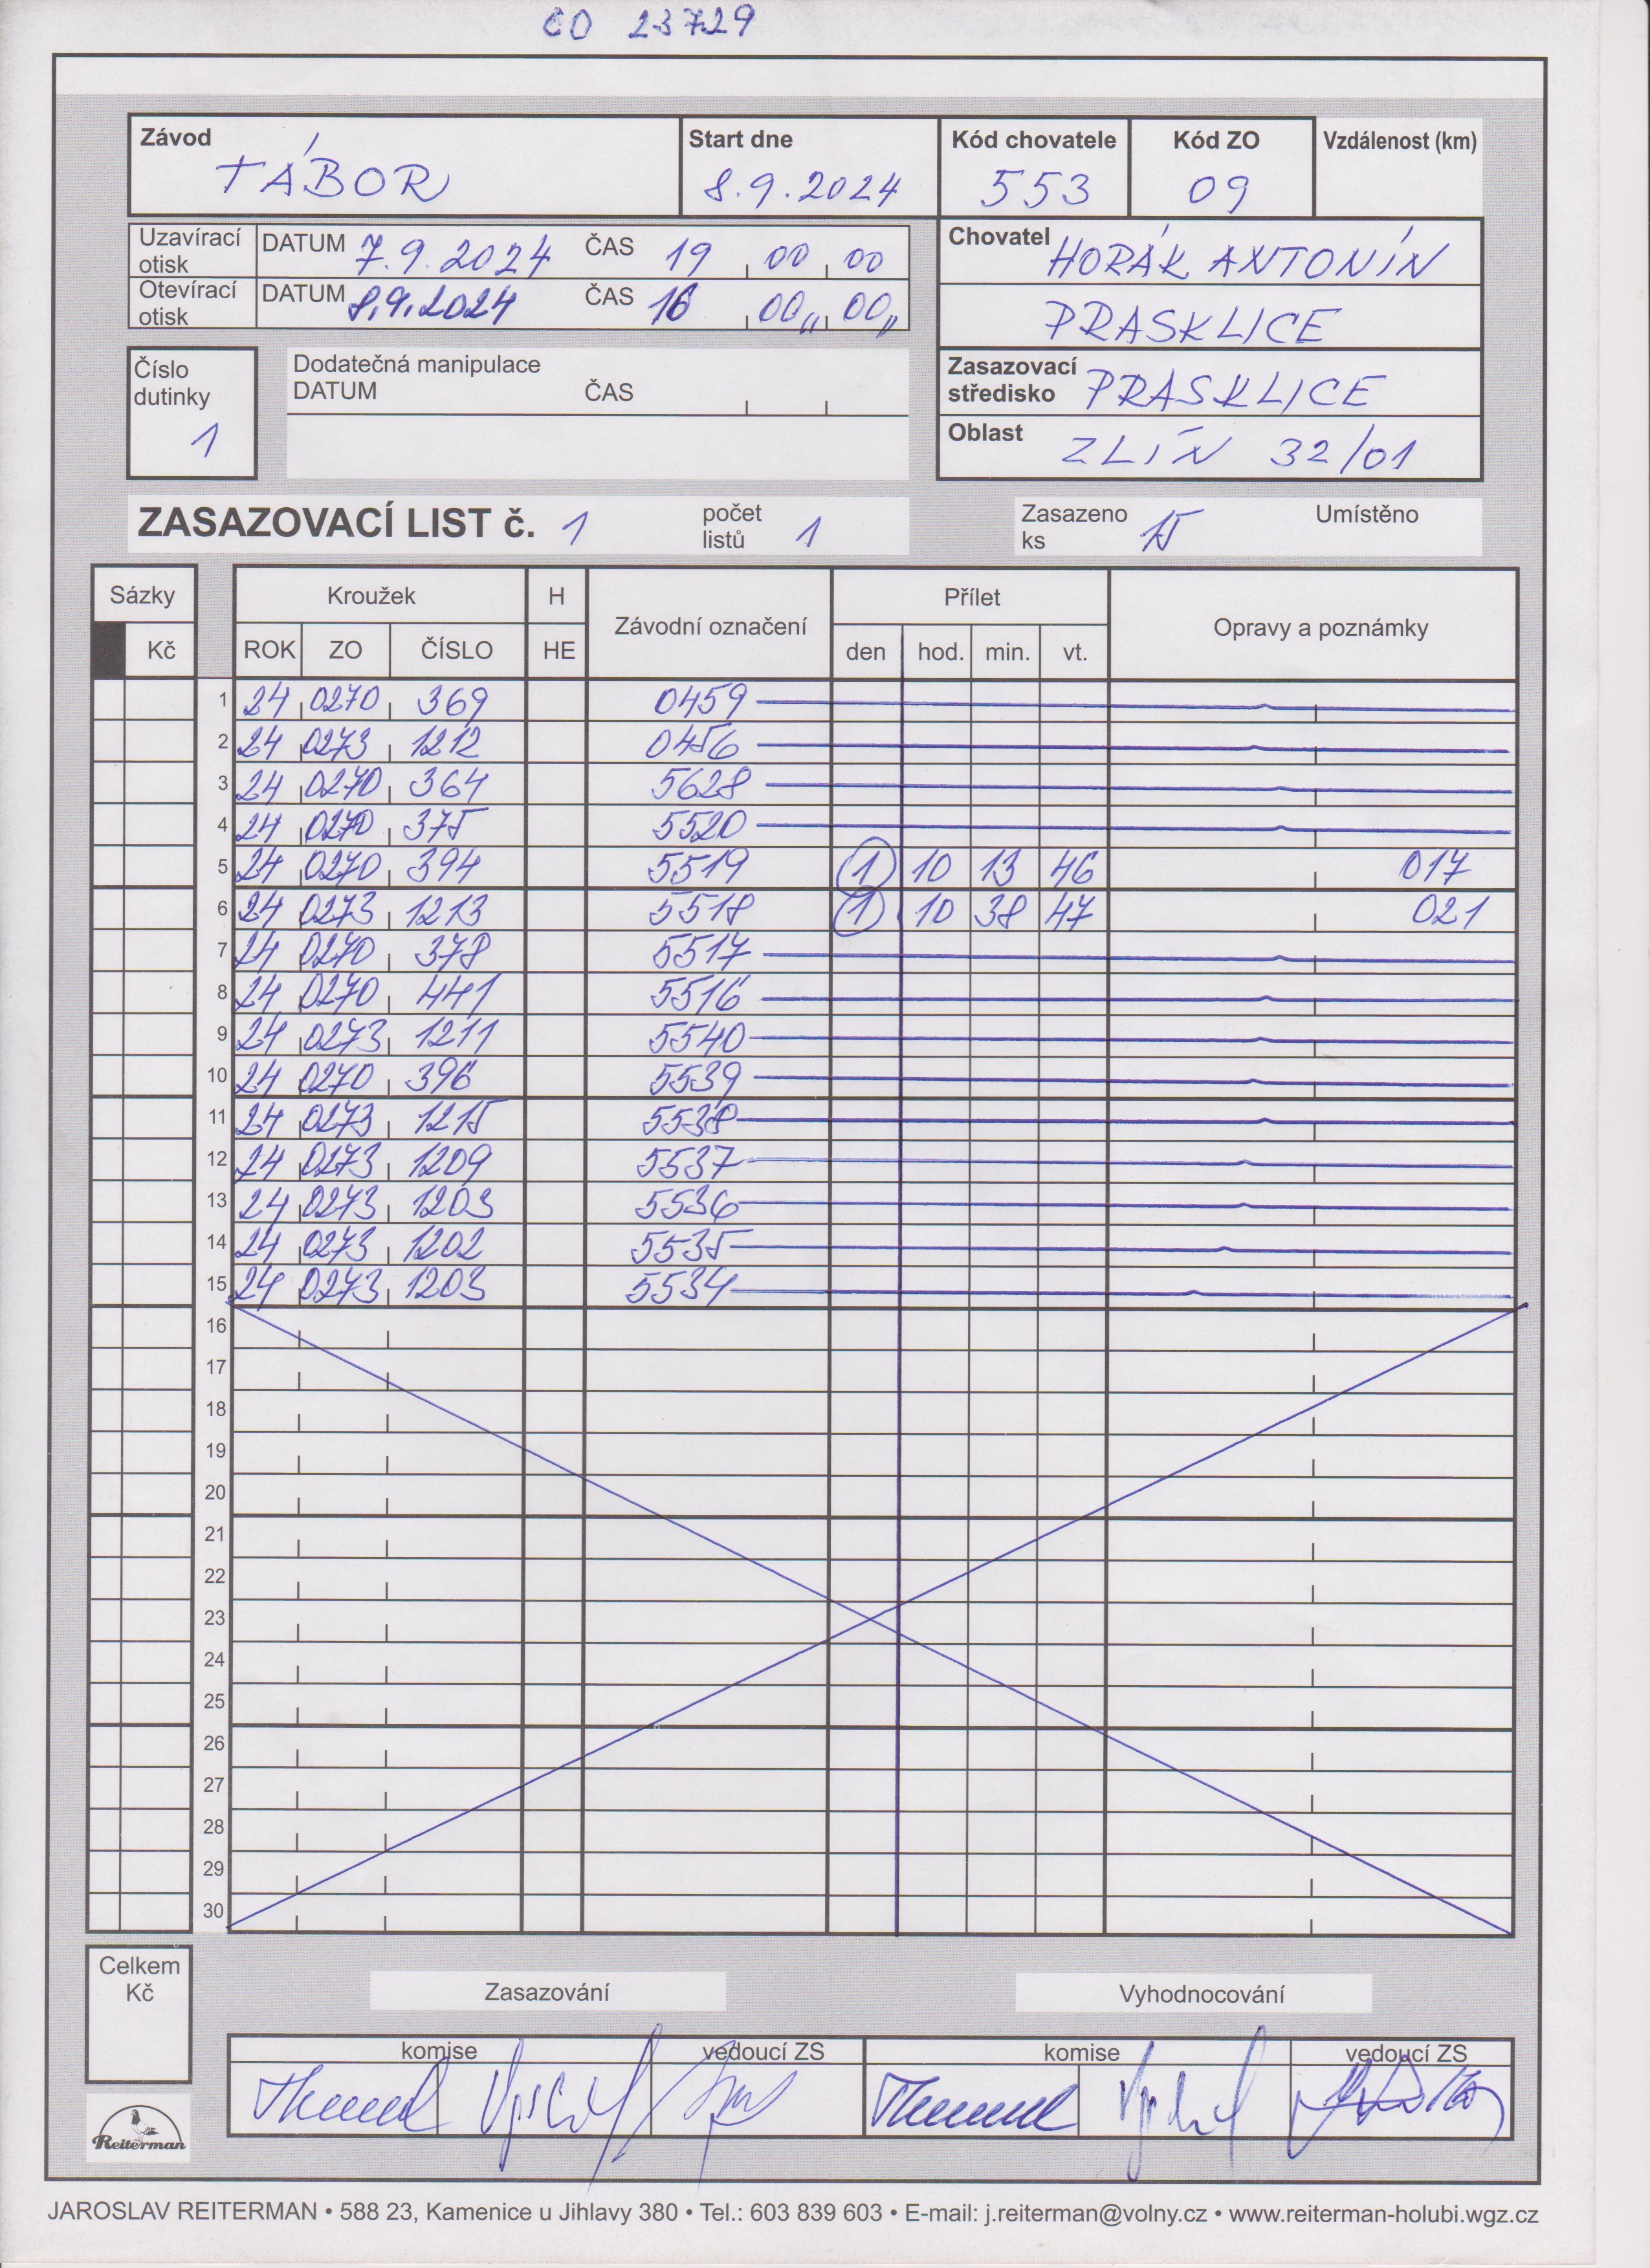 ČO 23729
Závod TÁBOR Start dne 8.9.2024 Kód chovatele 553 Kód ZO 09 Vzdálenost (km)
Uzavírací otisk DATUM 7.9.2024 ČAS 19 00 00
Otevírací otisk DATUM 8.9.2024 ČAS 16 00,, 00,,
Chovatel HORÁK ANTONÍN
PRASKLICE
Číslo dutinky 1
Dodatečná manipulace
DATUM ČAS
Zasazovací středisko PRASKLICE
Oblast ZLÍN 32/01
ZASAZOVACÍ LIST č. 1 počet listů 1 Zasazeno ks 15 Umístěno
Sázky Kroužek H Závodní označení Přílet Opravy a poznámky
Kč ROK ZO ČÍSLO HE den hod. min. vt.
1 24 0270 369 0459
2 24 0273 1212 0456
3 24 0270 364 5628
4 24 0270 375 5520
5 24 0270 394 5519 1 10 13 46 017
6 24 0273 1213 5518 1 10 38 47 021
7 24 0270 378 5517
8 24 0270 441 5516
9 24 0273 1211 5540
10 24 0270 396 5539
11 24 0273 1215 5538
12 24 0273 1209 5537
13 24 0273 1203 5536
14 24 0273 1202 5535
15 24 0273 1203 5534
16
17
18
19
20
21
22
23
24
25
26
27
28
29
30
Celkem Kč
Zasazování Vyhodnocování
komise vedoucí ZS komise vedoucí ZS
Reiterman
JAROSLAV REITERMAN • 588 23, Kamenice u Jihlavy 380 • Tel.: 603 839 603 • E-mail: j.reiterman@volny.cz • www.reiterman-holubi.wgz.cz